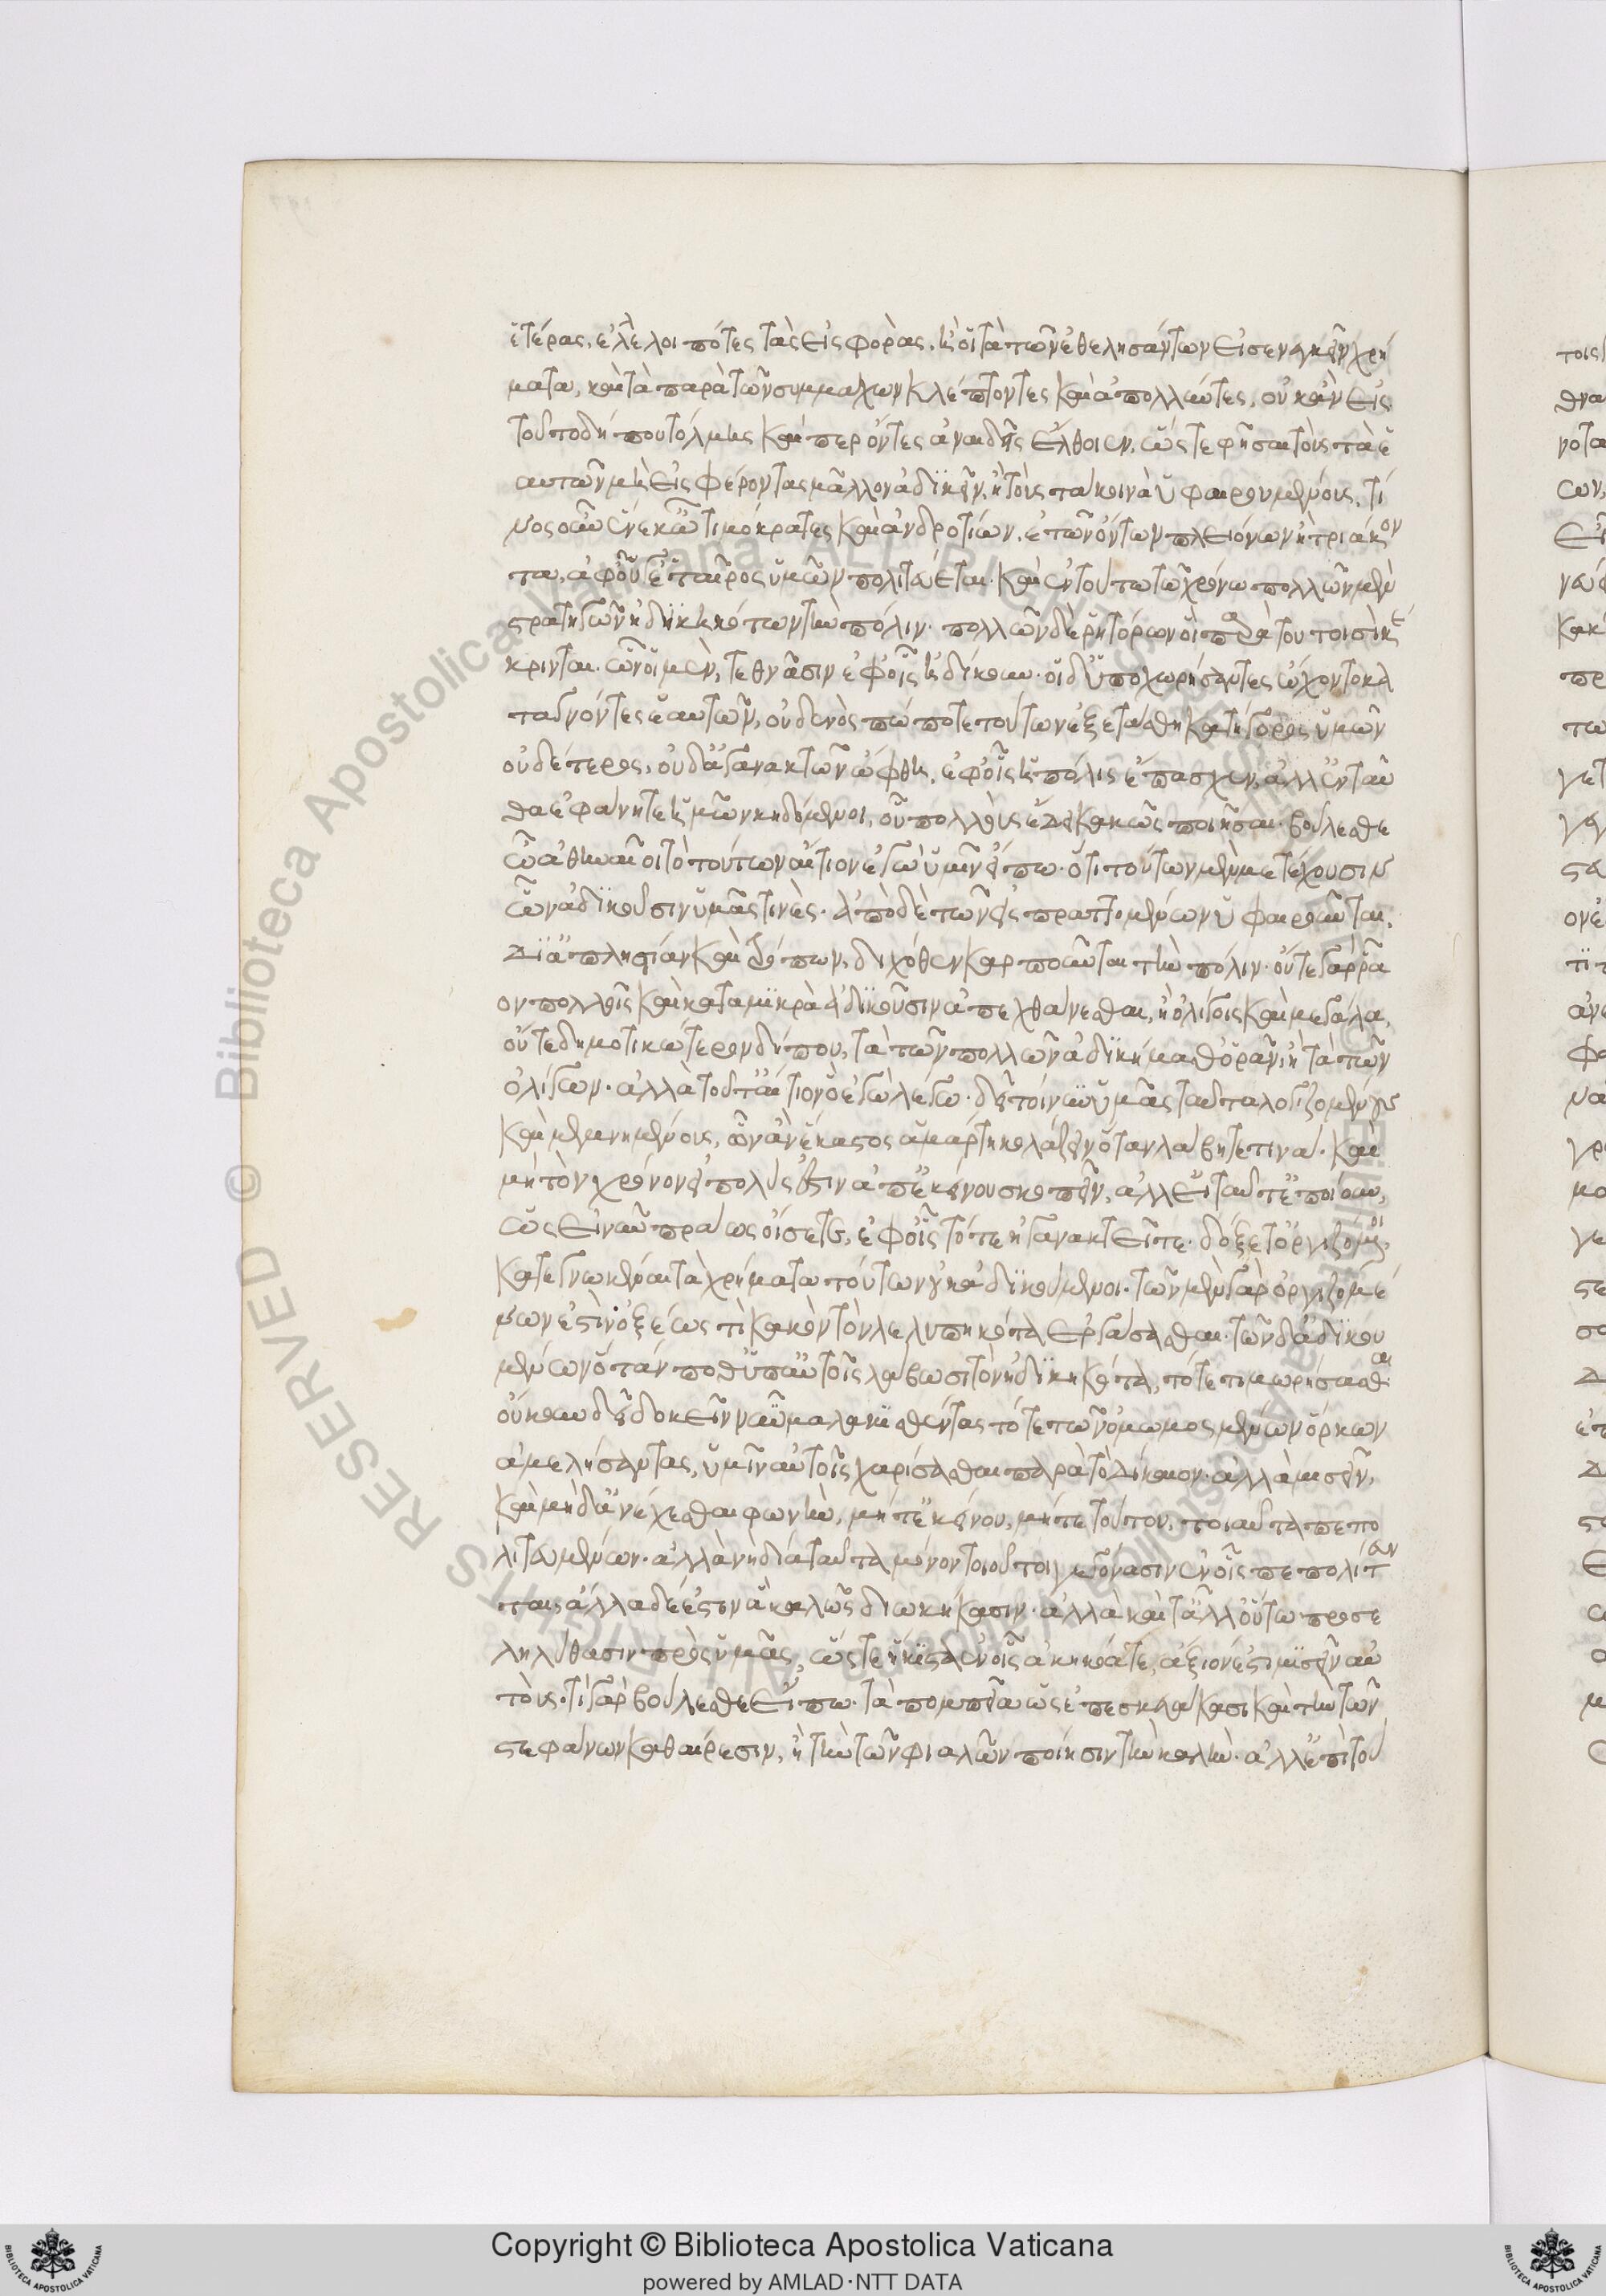 ἑτέρας, ἐλλελοιπότες τὰς εἰσφοράς. ἢ οἱ τὰ τῶν ἐθελησάντων εἰσενεγκεῖν χρή
ματα, καὶ τὰ παρὰ τῶν συμμάχων κλέπτοντες καὶ ἀπολλύντες, οὐκ ἂν εἰς
τοῦτο δήπου τόλμης καίπερ ὄντες ἀναιδεῖς ἔλθοιεν, ὥστε φῆσαι τοὺς τὰ ἑ
αυτῶν μὴ εἰσφέροντας μᾶλλον ἀδικεῖν, ἢ τοὺς τὰ κοινὰ ὑφαιρουμένους. τί
νος οὖν ἕνεκ' ὦ τιμόκρατες καὶ ἀνδροτίων, ἐτῶν ὄντων πλειόνων ἢ τριάκον
τα, ἀφ' οὗ γε ἕτερος ὑμῶν πολιτεύεται. καὶ ἐν τούτω τῶ χρόνω πολλῶν μὲν
στρατηγῶν ἠδικηκότων τὴν πόλιν. πολλῶν δὲ ῥητόρων οἳ παρὰ τουτοισὶ κέ
κρινται. ὧν οἱ μὲν, τεθνᾶσιν ἐφ' οἷς ἠδίκουν. οἱ δ' ὑποχωρήσαντες ὤχοντο κα
ταγνόντες ἑαυτῶν, οὐδενὸς πώποτε τούτων ἐξητάσθη κατήγορος ὑμῶν
οὐδέτερος, οὐδ' ἀγανακτῶν ὤφθη, ἐφ' οἷς ἡ πόλις ἔπασχεν, ἀλλ' ἐνταῦ
θα ἐφαίνητε ἡμῶν κηδόμενοι, οὗ πολλοὺς ἔδει κακῶς ποιῆσαι. βούλεσθε
ὦ ἀθηναῖοι τὸ τούτων αἴτιον ἐγὼ ὑμῖν εἴπω. ὅτι τούτων μὲν μετέχουσιν
ὧν ἀδικοῦσιν ὑμᾶς τινὲς. ἀπὸ δὲ τῶν εἰσπραττομένων ὑφαιροῦνται.
δι' ἀπληστίαν καὶ τρόπων, διχόθεν καρποῦνται τὴν πόλιν. οὔτε γὰρ ῥᾶ
ον πολλοῖς καὶ κατὰ μικρὰ ἀδικοῦσιν ἀπεχθάνεσθαι, ἢ ὀλίγοις καὶ μεγάλα,
οὔτε δημοτικώτερον δήπου, τὰ τῶν πολλῶν ἀδικήμαθ' ὁρᾶν ἢ τὰ τῶν
ὀλίγων. ἀλλὰ τοῦτ' αἴτιον ὃ ἐγὼ λέγω. δεῖ τοίνυν ὑμᾶς ταῦτα λογιζομένους
καὶ μεμνημένους, ὧν ἂν ἕκαστος ἁμάρτη κολάζειν ὅταν λάβητέ τινα. καὶ
μὴ τὸν χρόνον εἰ πολὺς ἐστιν ἀπ' ἐκείνου σκοπεῖν, ἀλλ' εἰ ταῦτ' ἐποίουν,
ὡς εἰ νῦν πράως οἴσετε, ἐφ' οἷς τότε ἠγανακτεῖτε. δόξετ' ὀργιζόμενοι,
κατεγνωκέναι τὰ χρήματα τούτων οὐκ ἀδικούμενοι. τῶν μὲν γὰρ ὀργιζομέ
νων ἐστὶν ὀξέως τὶ κακὸν τὸν λελυπηκότα ἐργάσασθαι. τῶν δ' ἀδικου
μένων ὅταν ποθ' ὑπ' αὐτοῖς λάβωσι τὸν ἠδικηκότα, τότε τιμωρήσασθαι.
οὔκουν δεῖ δοκεῖν νῦν μαλακισθέντας τότε τῶν ὀμωμοσμένων ὅρκων
ἀμελήσαντας, ὑμῖν αὐτοῖς χαρίσασθαι παρὰ τὸ δίκαιον. ἀλλὰ μισεῖν,
καὶ μηδ' ἀνέχεσθαι φωνὴν, μήτ' ἐκείνου, μήτε τούτου, τοιαῦτα πεπο
λιτευμένων. ἀλλὰ νὴ δία ταῦτα μόνον τοιοῦτοι γεγόνασιν ἐν οἷς πεπολίτευν
ται, ἄλλα δέ ἐστιν ἃ καλῶς διωκήκασιν. ἀλλὰ καὶ τἄλλ' οὕτω προσε
ληλύθασιν πρὸς ὑμᾶς, ὥστε ἥκιστα ἐν οἷς ἀκηκόατε, ἄξιόν ἐστι μισεῖν αὐ
τούς. τί γὰρ βούλεσθε εἴπω. τὰ πομπεῖα ὡς ἐπεσκευάκασι καὶ τὴν τῶν
στεφάνων καθαίρεσιν, ἢ τὴν τῶν φιαλῶν ποίησιν τὴν καλὴν. ἀλλ' ἐπὶ τού